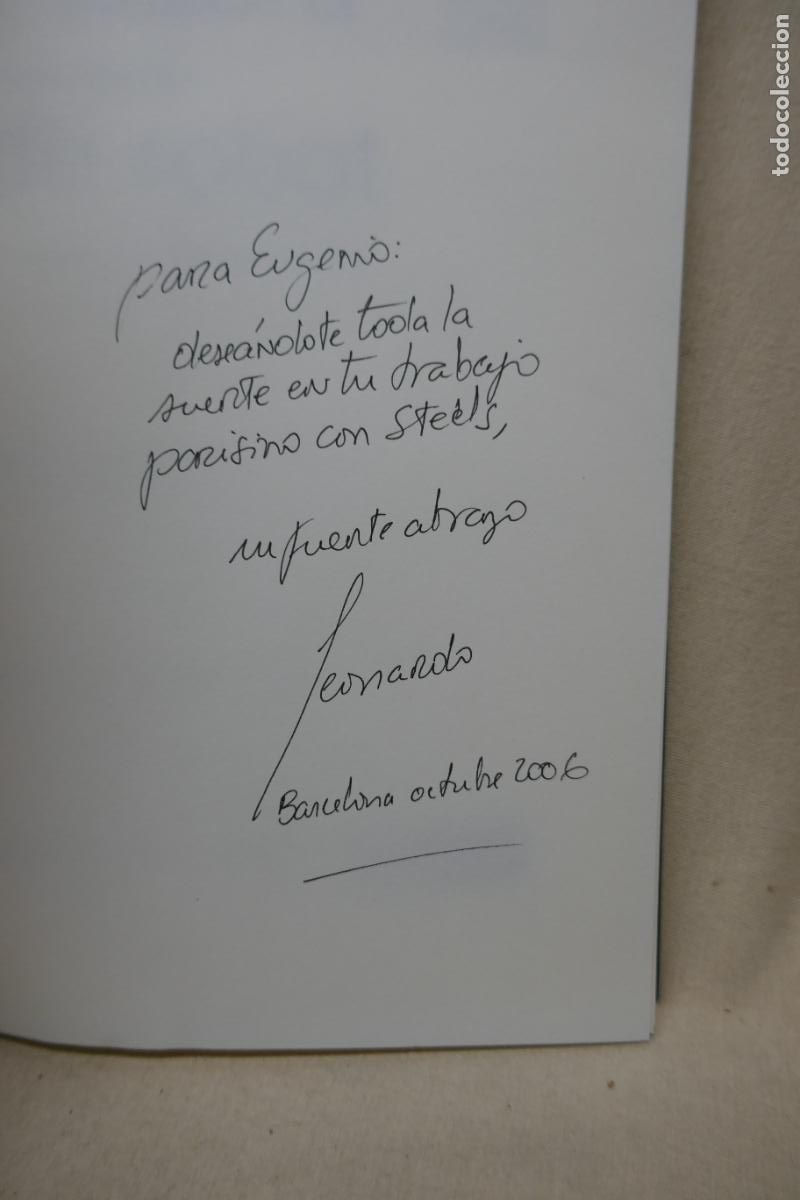 para Eugenio:
deseándote toda la
suerte en tu trabajo
parisino con Steels,
un fuerte abrazo
Leonardo
Barcelona octubre 2006
todocoleccion